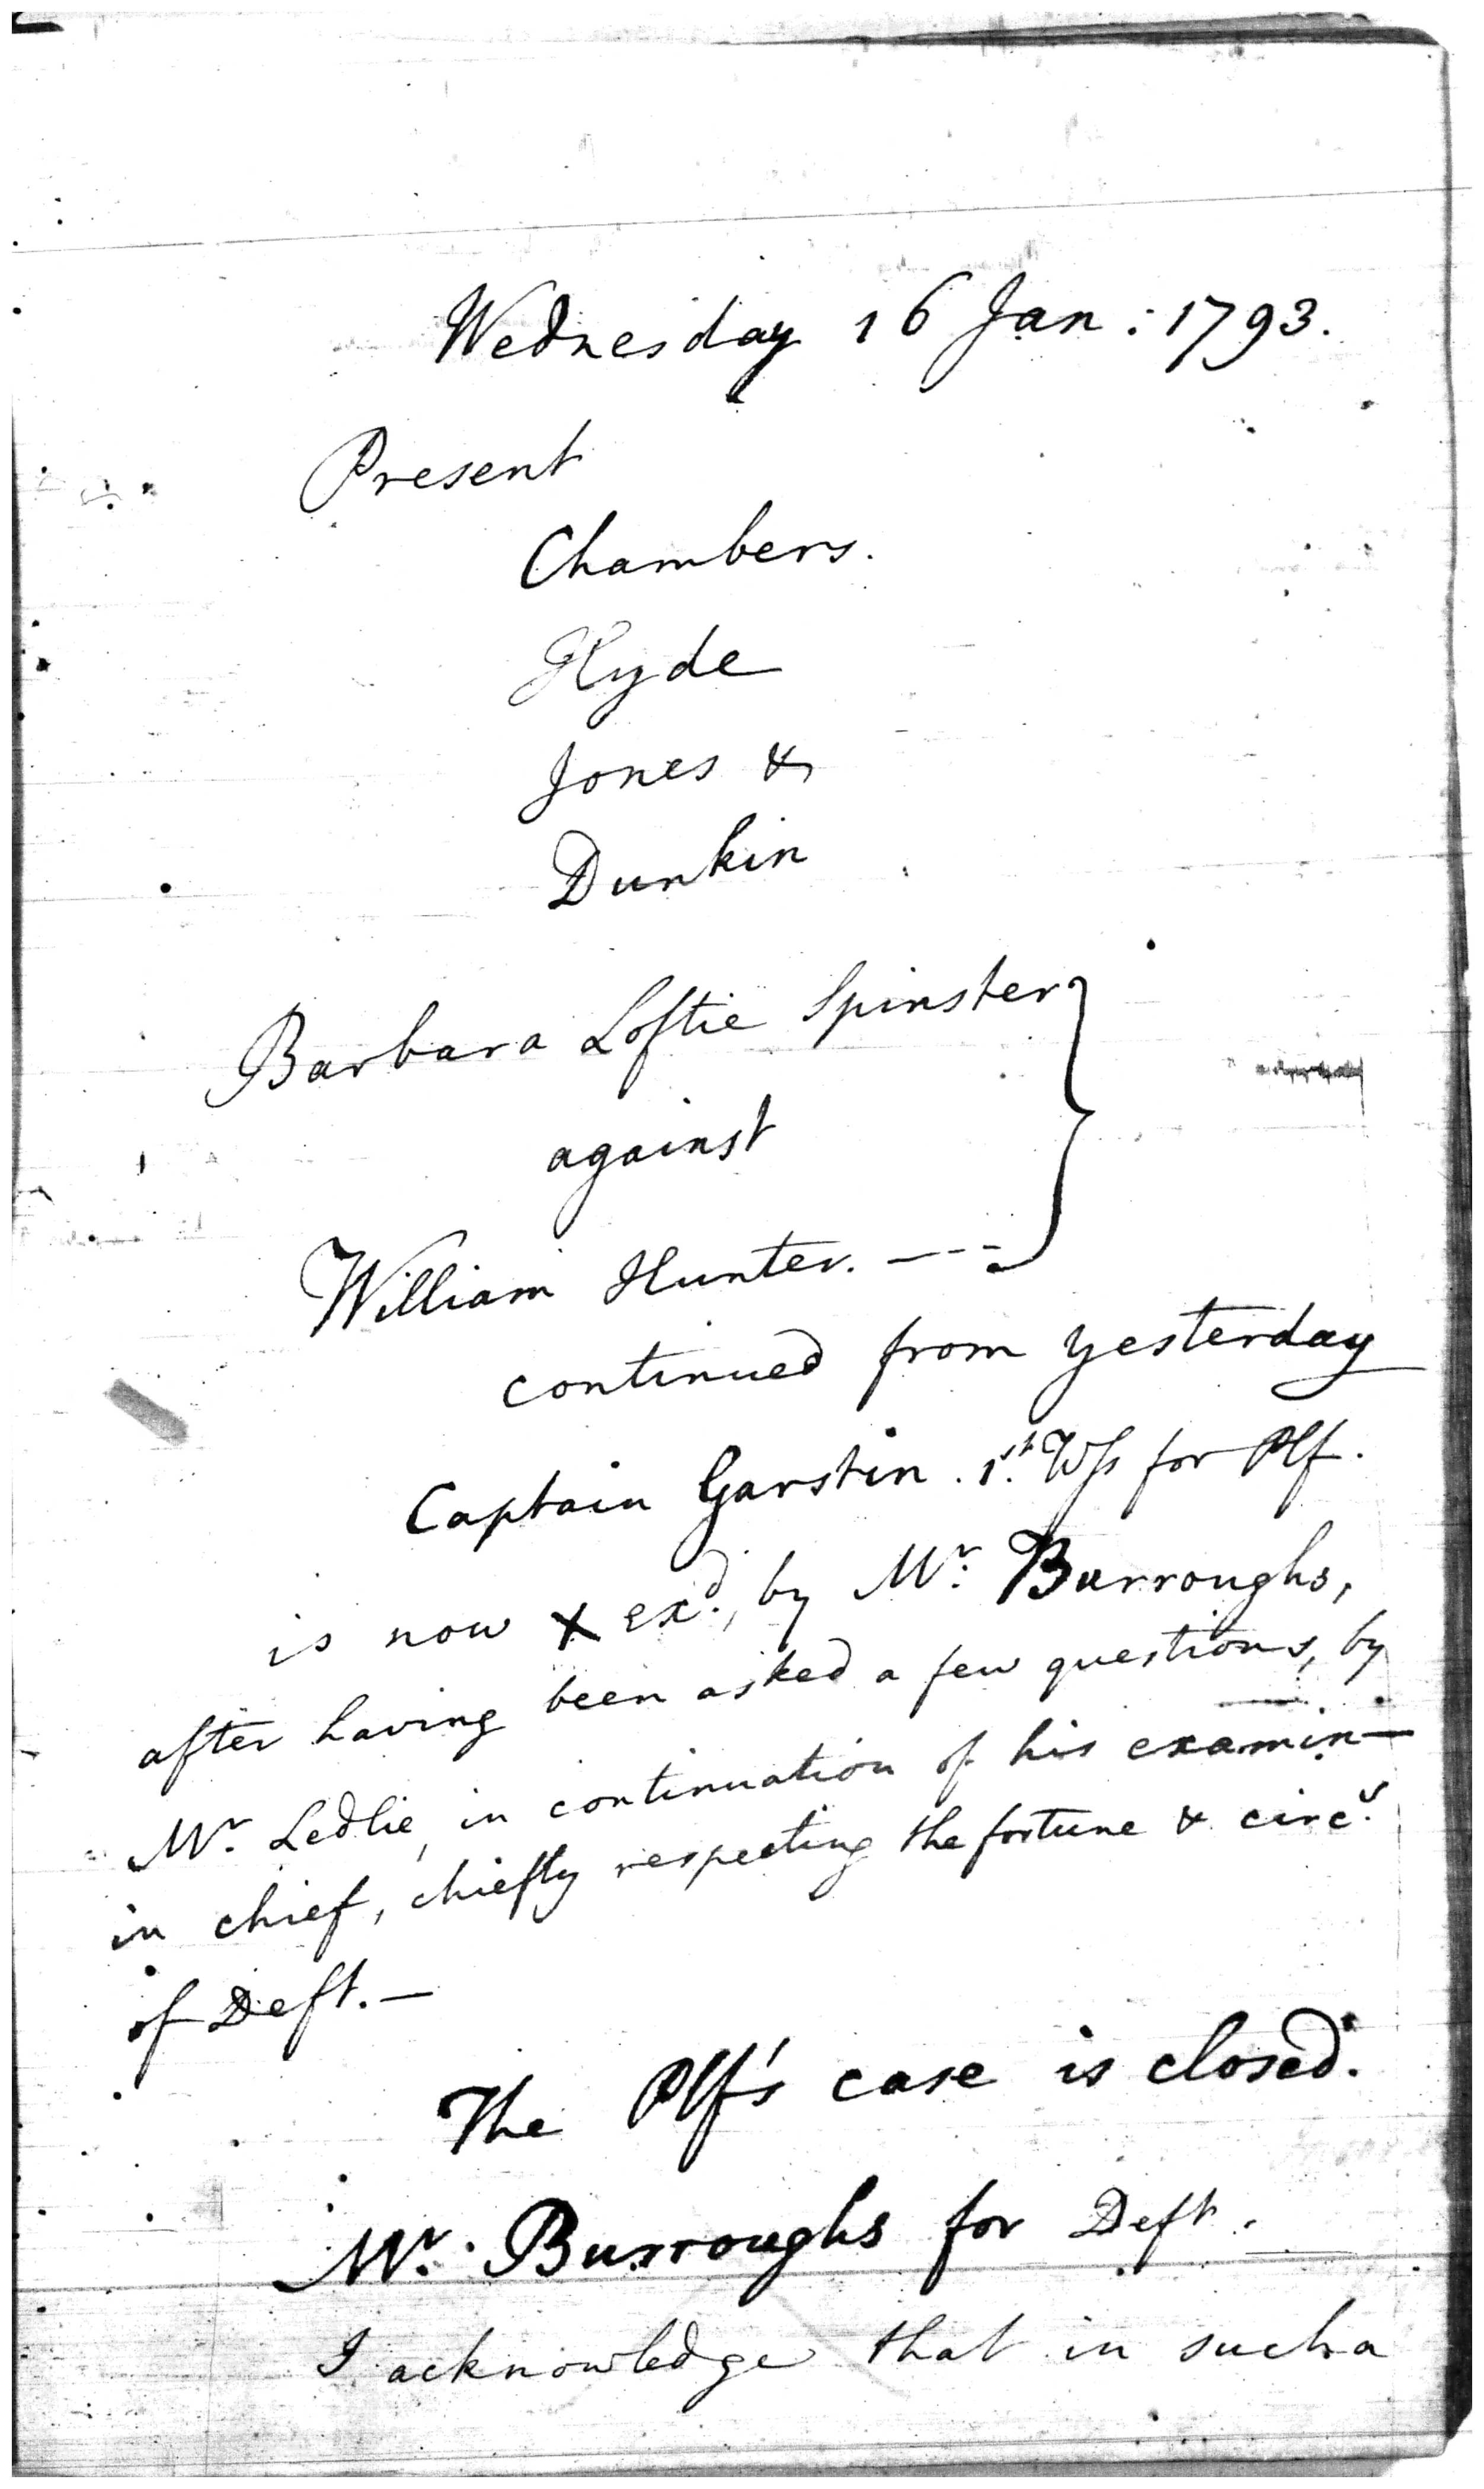 Wednesday 16 Jan: 1793.
Present
Chambers.
Hyde
Jones &
Dunkin
Barbara Loftie Spinster
against
William Hunter. ---
continued from yesterday
Captain Garstin. 1st. Wss for Plf.
is now X exd., by Mr. Burroughs,
after having been asked a few questions, by
Mr. Ledlie, in continuation of his examin—
in chief, chiefly respecting the fortune & circs.
of Deft. —
The Plf's case is closed.
Mr. Burroughs for Deft.
I acknowledge that in such a